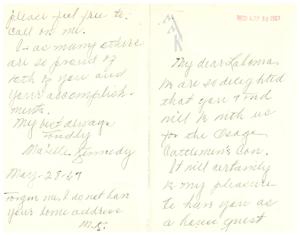 My dear Lahoma
We are so delighted
that you and
will be with us
for the Osage
Cattlemen's Con.
It will certainly
be my pleasure
to have you as
a house guest
please feel free to
call on me.
I as many others
are so proud of
both of you and
your accomplish-
ments.
My best always
Fondly
Maybelle Kennedy
May-28-67
Forgive me, I do not have
your home address
M.K.